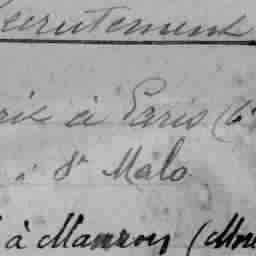 Recrutement
à Paris (6
à St Malo
à Manvoy (Mor